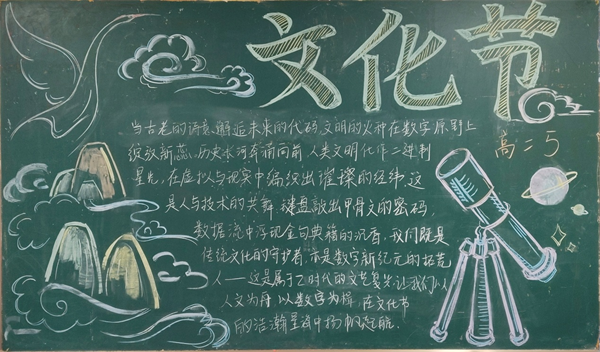 文化节
高二5
当古老的诗意邂逅未来的代码,文明的火种在数字原野上
绽放新蕊。历史长河奔涌向前,人类文明化作二进制
星光,在虚拟与现实中编织出璀璨的经纬。这
是人与技术的共舞,键盘敲出甲骨文的密码,
数据流中浮现金句典籍的沉香。我们既是
传统文化的守护者,亦是数字新纪元的拓荒
人——这是属于Z时代的文艺复兴,让我们以
人文为舟,以数字为桨,在文化节
的浩瀚星海中扬帆起航。